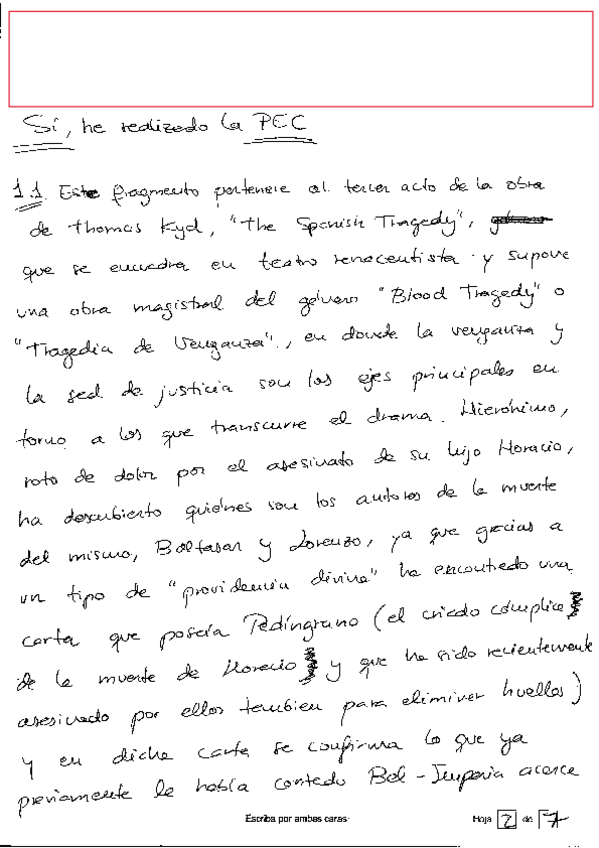 Sí, he realizado la PEC
1.1. Este fragmento pertenece al tercer acto de la obra
de Thomas Kyd, "The Spanish Tragedy",
que se encuadra en teatro renacentista y supone
una obra magistral del género "Blood Tragedy" o
"Tragedia de Venganza", en donde la venganza y
la sed de justicia son los ejes principales en
torno a los que transcurre el drama. Hieronimo,
roto de dolor por el asesinato de su hijo Horacio,
ha descubierto quiénes son los autores de la muerte
del mismo, Baltasar y Lorenzo, ya que gracias a
un tipo de "providencia divina" ha encontrado una
carta que poseía Pedingrano (el criado cómplice
de la muerte de Horacio y que ha sido recientemente
asesinado por ellos tambien para eliminar huellas)
y en dicha carta se confirma lo que ya
previamente le había contado Bel-Imperia acerca
Escriba por ambas caras
Hoja 2 de 7